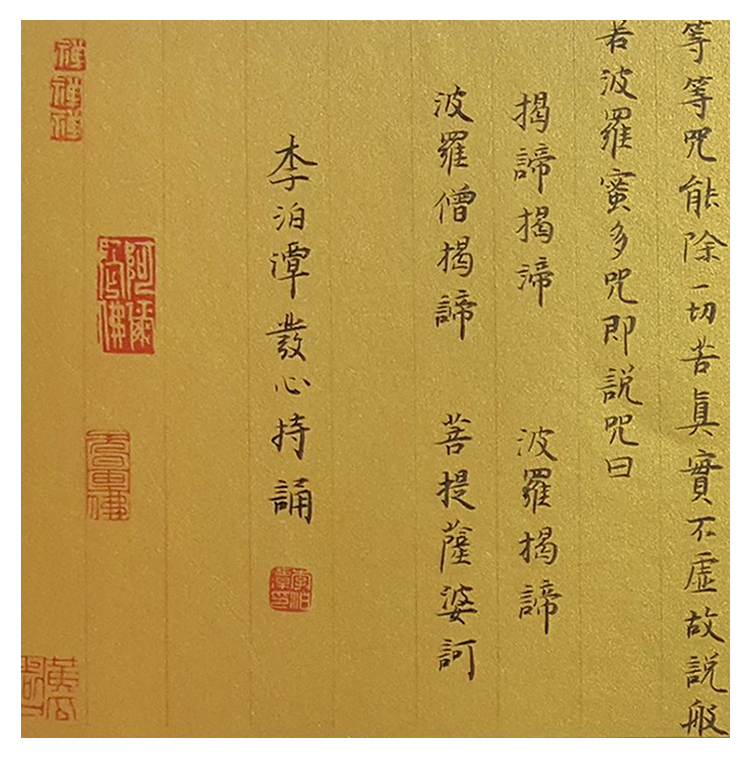 等等咒能除一切苦眞實不虛故説般
若波羅蜜多咒即説咒曰
揭諦揭諦　波羅揭諦
波羅僧揭諦　菩提薩婆訶
李泊潭發心持誦
李泊潭印
阿弥陀佛